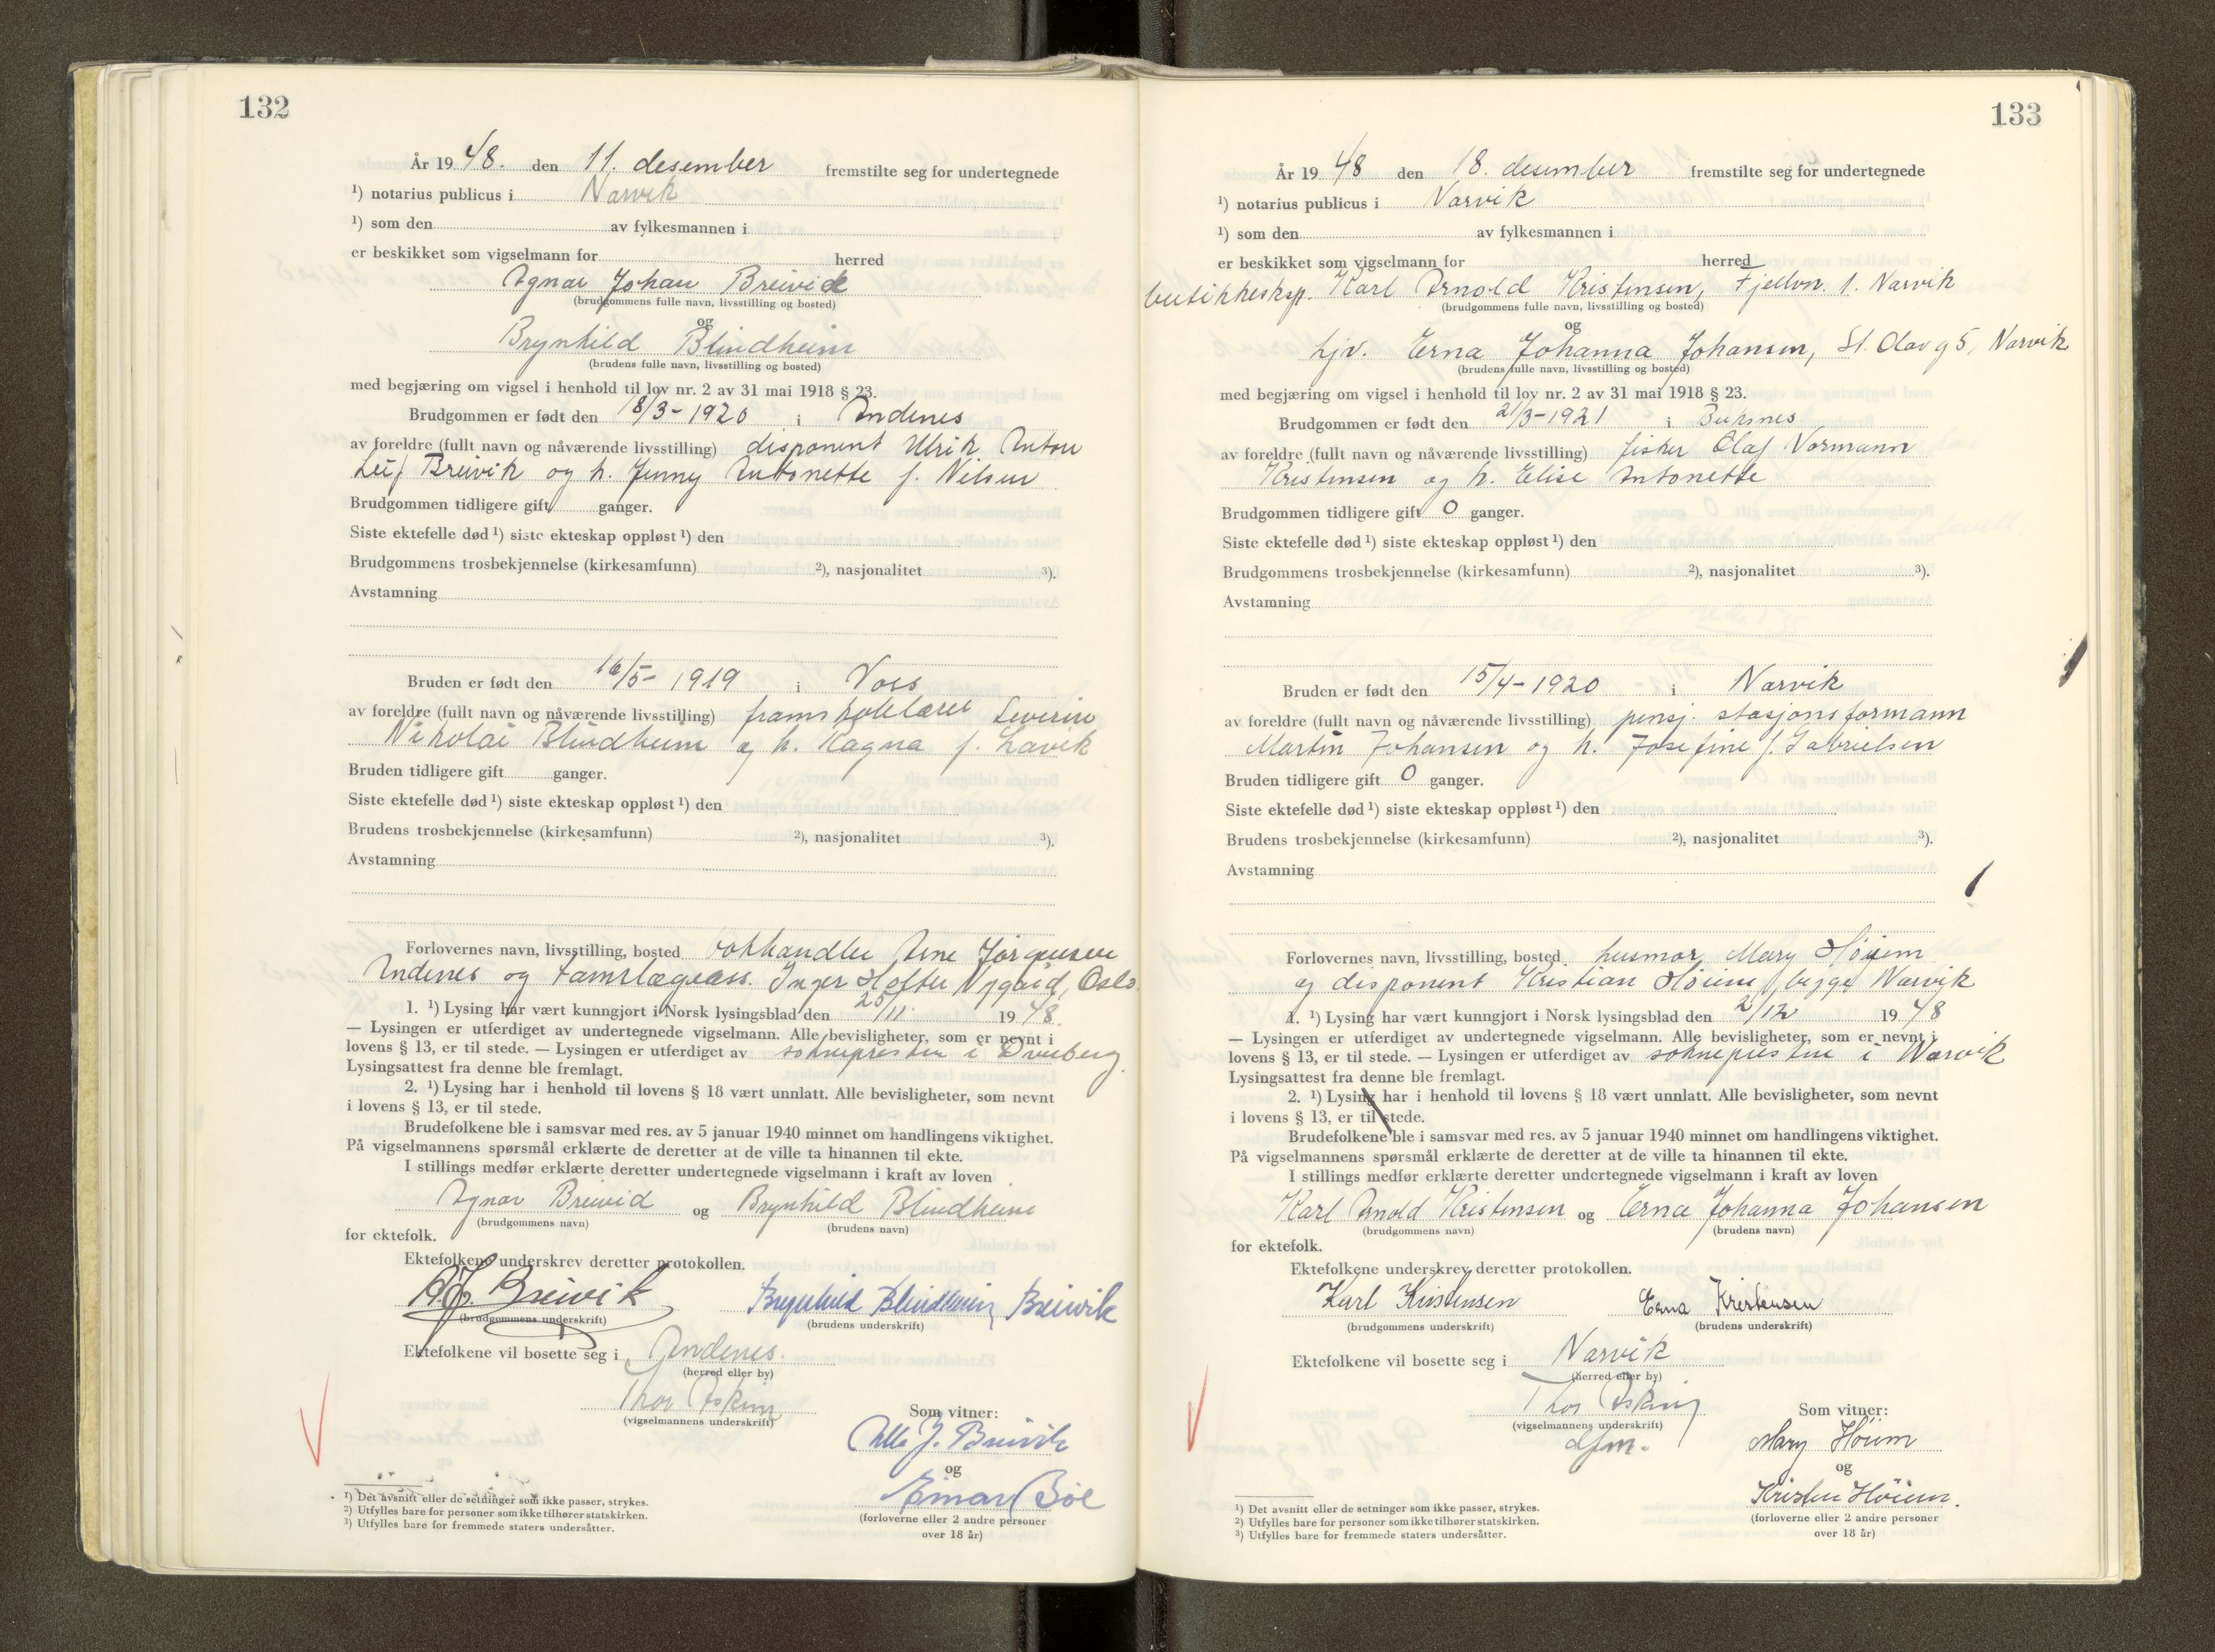 132
År 19 48. den 11. desember fremstilte seg for undertegnede
¹) notarius publicus i Narvik
¹) som den av fylkesmannen i
er beskikket som vigselmann for herred
Agnar Johan Breivik
(brudgommens fulle navn, livsstilling og bosted)
og
Brynhild Blindheim
(brudens fulle navn, livsstilling og bosted)
med begjæring om vigsel i henhold til lov nr. 2 av 31 mai 1918 § 23.
Brudgommen er født den 18/3- 1920 i Andenes
av foreldre (fullt navn og nåværende livsstilling) disponent Ulrik Anton
Leif Breivik og h. Jenny Antonette f. Nilsen
Brudgommen tidligere gift ganger.
Siste ektefelle død ¹) siste ekteskap oppløst ¹) den
Brudgommens trosbekjennelse (kirkesamfunn) ²), nasjonalitet ³).
Avstamning
Bruden er født den 16/5- 1919 i Voss
av foreldre (fullt navn og nåværende livsstilling) framskolelærer Severin
Nikolai Blindheim og h. Ragna f. Lavik
Bruden tidligere gift ganger.
Siste ektefelle død ¹) siste ekteskap oppløst ¹) den
Brudens trosbekjennelse (kirkesamfunn) ²), nasjonalitet ³).
Avstamning
Forlovernes navn, livsstilling, bosted bokhandler Arne Jørgensen
Andenes og tannlægeass. Inger Hofter Nygård, Oslo.
1. ¹) Lysing har vært kunngjort i Norsk lysingsblad den 25/11 19 48.
— Lysingen er utferdiget av undertegnede vigselmann. Alle bevisligheter, som er nevnt i
lovens § 13, er til stede. — Lysingen er utferdiget av soknepresten i Dverberg.
Lysingsattest fra denne ble fremlagt.
2. ¹) Lysing har i henhold til lovens § 18 vært unnlatt. Alle bevisligheter, som nevnt
i lovens § 13, er til stede.
Brudefolkene ble i samsvar med res. av 5 januar 1940 minnet om handlingens viktighet.
På vigselmannens spørsmål erklærte de deretter at de ville ta hinannen til ekte.
I stillings medfør erklærte deretter undertegnede vigselmann i kraft av loven
Agnar Breivid og Brynhild Blindheim
(brudgommens navn) (brudens navn)
for ektefolk.
Ektefolkene underskrev deretter protokollen.
A.J. Breivik Brynhild Blindheim Breivik
(brudgommens underskrift) (brudens underskrift)
Ektefolkene vil bosette seg i Andenes.
(herred eller by)
Thor Askim
(vigselmannens underskrift)
Som vitner:
J. Breivik
og
Einar Bøe
(forloverne eller 2 andre personer
over 18 år)
¹) Det avsnitt eller de setninger som ikke passer, strykes.
²) Utfylles bare for personer som ikke tilhører statskirken.
³) Utfylles bare for fremmede staters undersåtter.
133
År 19 48 den 18. desember fremstilte seg for undertegnede
¹) notarius publicus i Narvik
¹) som den av fylkesmannen i
er beskikket som vigselmann for herred
butikkeksp. Karl Arnold Kristensen, Fjellvn. 1. Narvik
(brudgommens fulle navn, livsstilling og bosted)
og
hjv. Erna Johanna Johansen, St. Olav g 5, Narvik
(brudens fulle navn, livsstilling og bosted)
med begjæring om vigsel i henhold til lov nr. 2 av 31 mai 1918 § 23.
Brudgommen er født den 21/3-1921 i Buksnes
av foreldre (fullt navn og nåværende livsstilling) fisker Olaf Normann
Kristensen og h. Elise Antonette
Brudgommen tidligere gift 0 ganger.
Siste ektefelle død ¹) siste ekteskap oppløst ¹) den
Brudgommens trosbekjennelse (kirkesamfunn) ²), nasjonalitet ³).
Avstamning
Bruden er født den 15/4- 1920 i Narvik
av foreldre (fullt navn og nåværende livsstilling) pensj. stasjonsformann
Martin Johansen og h. Josefine f. Gabrielsen
Bruden tidligere gift 0 ganger.
Siste ektefelle død ¹) siste ekteskap oppløst ¹) den
Brudens trosbekjennelse (kirkesamfunn) ²), nasjonalitet ³).
Avstamning
Forlovernes navn, livsstilling, bosted husmor Mary Høiem
og disponent Kristian Høiem, begge Narvik
1. ¹) Lysing har vært kunngjort i Norsk lysingsblad den 2/12 19 48
— Lysingen er utferdiget av undertegnede vigselmann. Alle bevisligheter, som er nevnt i
lovens § 13, er til stede. — Lysingen er utferdiget av soknepresten i Narvik
Lysingsattest fra denne ble fremlagt.
2. ¹) Lysing har i henhold til lovens § 18 vært unnlatt. Alle bevisligheter, som nevnt
i lovens § 13, er til stede.
Brudefolkene ble i samsvar med res. av 5 januar 1940 minnet om handlingens viktighet.
På vigselmannens spørsmål erklærte de deretter at de ville ta hinannen til ekte.
I stillings medfør erklærte deretter undertegnede vigselmann i kraft av loven
Karl Arnold Kristensen og Erna Johanna Johansen
(brudgommens navn) (brudens navn)
for ektefolk.
Ektefolkene underskrev deretter protokollen.
Karl Kristensen Erna Kristensen
(brudgommens underskrift) (brudens underskrift)
Ektefolkene vil bosette seg i Narvik
(herred eller by)
Thor Askim
(vigselmannens underskrift)
dfm.
Som vitner:
Mary Høiem
og
Kristian Høiem.
(forloverne eller 2 andre personer
over 18 år)
¹) Det avsnitt eller de setninger som ikke passer, strykes.
²) Utfylles bare for personer som ikke tilhører statskirken.
³) Utfylles bare for fremmede staters undersåtter.